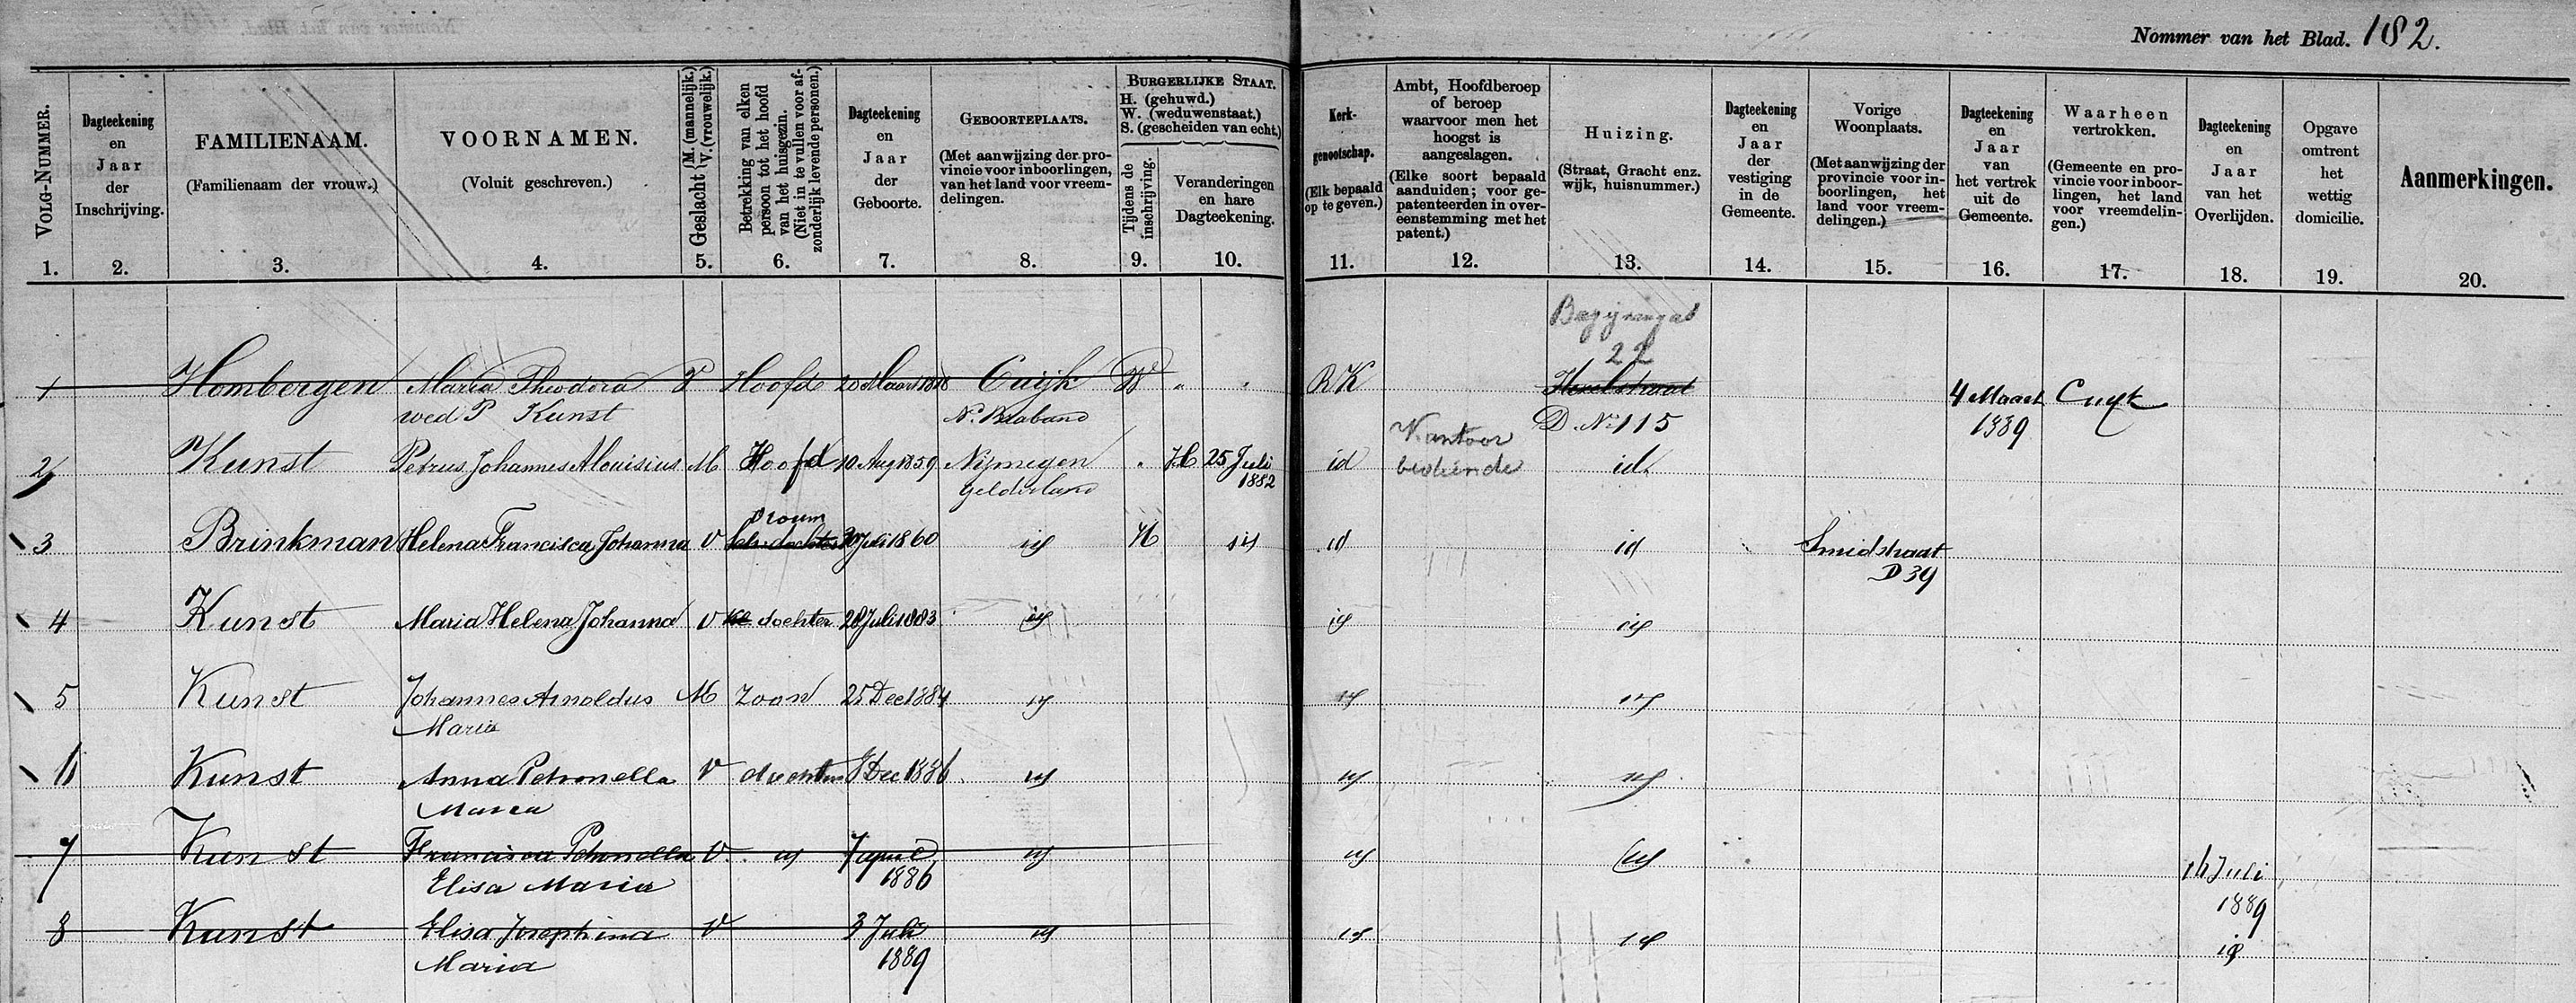 Nommer van het Blad. 182.
VOLG-NUMMER.
1.
Dagteekening
en
Jaar
der
Inschrijving.
2.
FAMILIENAAM.
(Familienaam der vrouw.)
3.
VOORNAMEN.
(Voluit geschreven.)
4.
Geslacht { M. (mannelijk.) V. (vrouwelijk.)
5.
Betrekking van elken
persoon tot het hoofd
van het huisgezin.
(Niet in te vullen voor af-
zonderlijk levende personen.)
6.
Dagteekening
en
Jaar
der
Geboorte.
7.
GEBOORTEPLAATS.
(Met aanwijzing der pro-
vincie voor inboorlingen,
van het land voor vreem-
delingen.
8.
BURGERLIJKE STAAT.
H. (gehuwd.)
W. (weduwenstaat.)
S. (gescheiden van echt.)
Tijdens de
inschrijving.
9.
Veranderingen
en hare
Dagteekening.
10.
Kerk-
genootschap.
(Elk bepaald
op te geven.)
11.
Ambt, Hoofdberoep
of beroep
waarvoor men het
hoogst is
aangeslagen.
(Elke soort bepaald
aanduiden; voor ge-
patenteerden in over-
eenstemming met het
patent.)
12.
Huizing.
(Straat, Gracht enz.
wijk, huisnummer.)
13.
Dagteekening
en
Jaar
der
vestiging
in de
Gemeente.
14.
Vorige
Woonplaats.
(Met aanwijzing der
provincie voor in-
boorlingen, het
land voor vreem-
delingen.)
15.
Dagteekening
en
Jaar
van
het vertrek
uit de
Gemeente.
16.
Waarheen
vertrokken.
(Gemeente en pro-
vincie voor inboor-
lingen, het land
voor vreemdelin-
gen.)
17.
Dagteekening
en
Jaar
van het
Overlijden.
18.
Opgave
omtrent
het
wettig
domicilie.
19.
Aanmerkingen.
20.
22
1 Hombergen Maria Theodora Hoofd 20 Maart Cuijk W RK 4 Maart Cuyk
wed P Kunst N. Braband D. No 115 1889
Kantoor
2 Kunst Petrus Johannes Aloisius M Hoofd 10 Aug 1859 Nijmegen H 25 Juli id bediende id
Gelderland 1882
vrouw
3 Brinkman Helena Francisca Johanna V Juli 1860 id H id id id Smidstraat
D 39
4 Kunst Maria Helena Johanna V dochter 28 Juli 1883 id id id
5 Kunst Johannes Arnoldus M zoon 25 Dec 1884 id id id
Maria
6 Kunst Anna Petronella V dochter 8 Dec 1886 id id id
Maria
7 Kunst Francisca Petronella V id 7 april id id id 16 Juli
Elisa Maria 1886 1889
8 Kunst Elisa Josephina V 3 Juli id id id id
Maria 1889